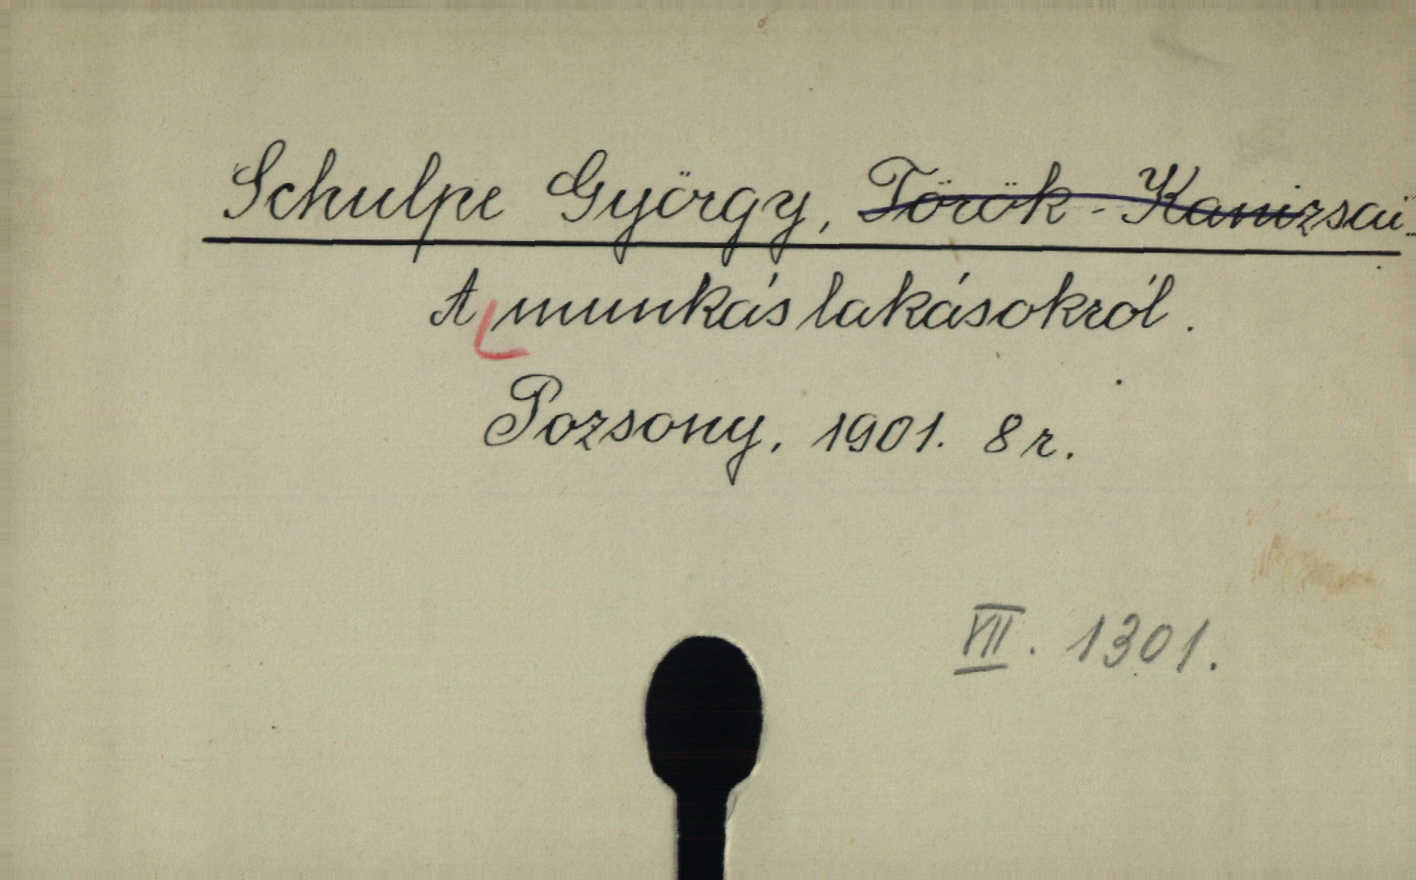 Schulpe György, Török-Kanizsai.
A munkás lakásokról.
Pozsony, 1901. 8 r.
VII. 1301.